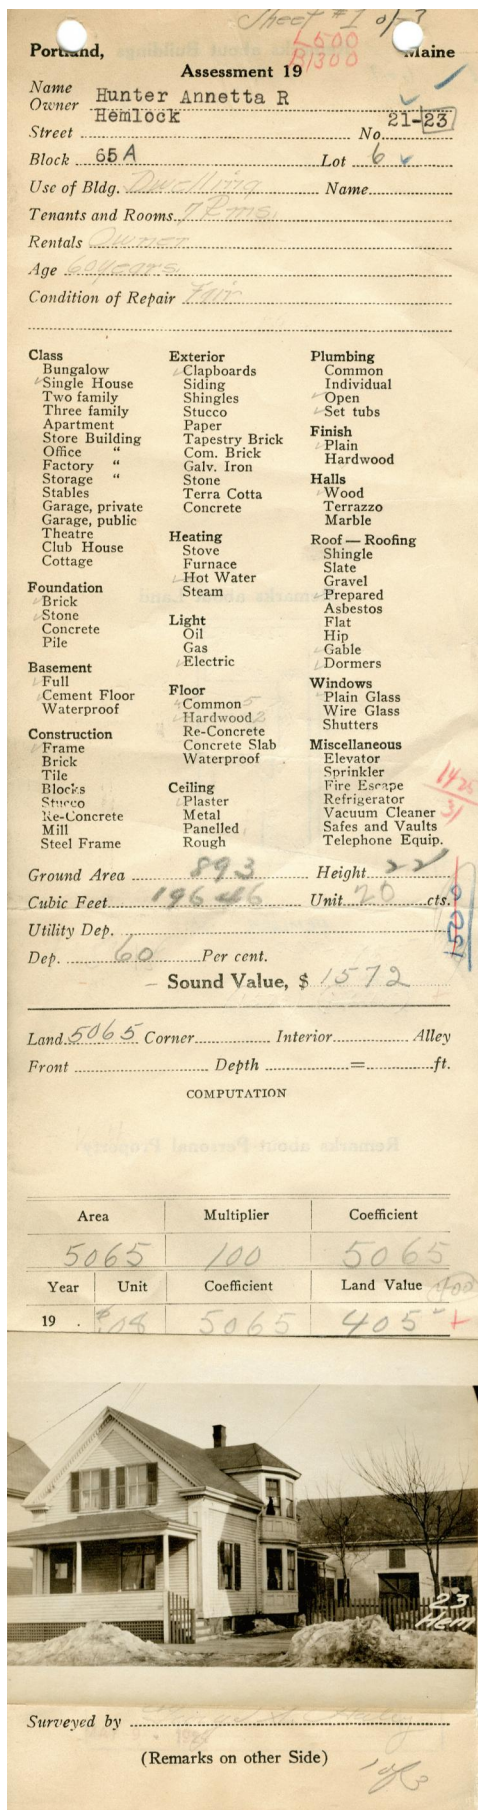 Sheet #1 of 3
L500
B1300
Portland, Maine
Assessment 19
Name
Owner Hunter Annetta R
Hemlock
Street No. 21-23
Block 65A Lot 6
Use of Bldg. Dwelling Name
Tenants and Rooms 7 Rms.
Rentals Owner
Age 60 years
Condition of Repair Fair
Class
Bungalow
Single House
Two family
Three family
Apartment
Store Building
Office "
Factory "
Storage "
Stables
Garage, private
Garage, public
Theatre
Club House
Cottage
Foundation
Brick
Stone
Concrete
Pile
Basement
Full
Cement Floor
Waterproof
Construction
Frame
Brick
Tile
Blocks
Stucco
Re-Concrete
Mill
Steel Frame
Exterior
Clapboards
Siding
Shingles
Stucco
Paper
Tapestry Brick
Com. Brick
Galv. Iron
Stone
Terra Cotta
Concrete
Heating
Stove
Furnace
Hot Water
Steam
Light
Oil
Gas
Electric
Floor
Common 5
Hardwood 2
Re-Concrete
Concrete Slab
Waterproof
Ceiling
Plaster
Metal
Panelled
Rough
Plumbing
Common
Individual
Open
Set tubs
Finish
Plain
Hardwood
Halls
Wood
Terrazzo
Marble
Roof — Roofing
Shingle
Slate
Gravel
Prepared
Asbestos
Flat
Hip
Gable
Dormers
Windows
Plain Glass
Wire Glass
Shutters
Miscellaneous
Elevator
Sprinkler
Fire Escape
Refrigerator
Vacuum Cleaner
Safes and Vaults
Telephone Equip.
1425
31
Ground Area 893 Height 22'
Cubic Feet 19646 Unit 20 cts.
1500
Utility Dep.
Dep. 60 Per cent.
Sound Value, $ 1572
Land 5065 Corner Interior Alley
Front Depth = ft.
COMPUTATION
Area Multiplier Coefficient
5065 100 5065
Year Unit Coefficient Land Value 400
19 . $.08 5065 405
23
Hem
Surveyed by
(Remarks on other Side)
1 of 3